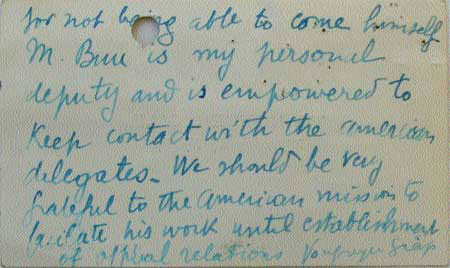 for not being able to come himself
M. Buu is my personal
deputy and is empowered to
Keep contact with the american
delegates - We should be very
grateful to the American mission to
facilate his work until establishment
of official relations Vonguyengiap